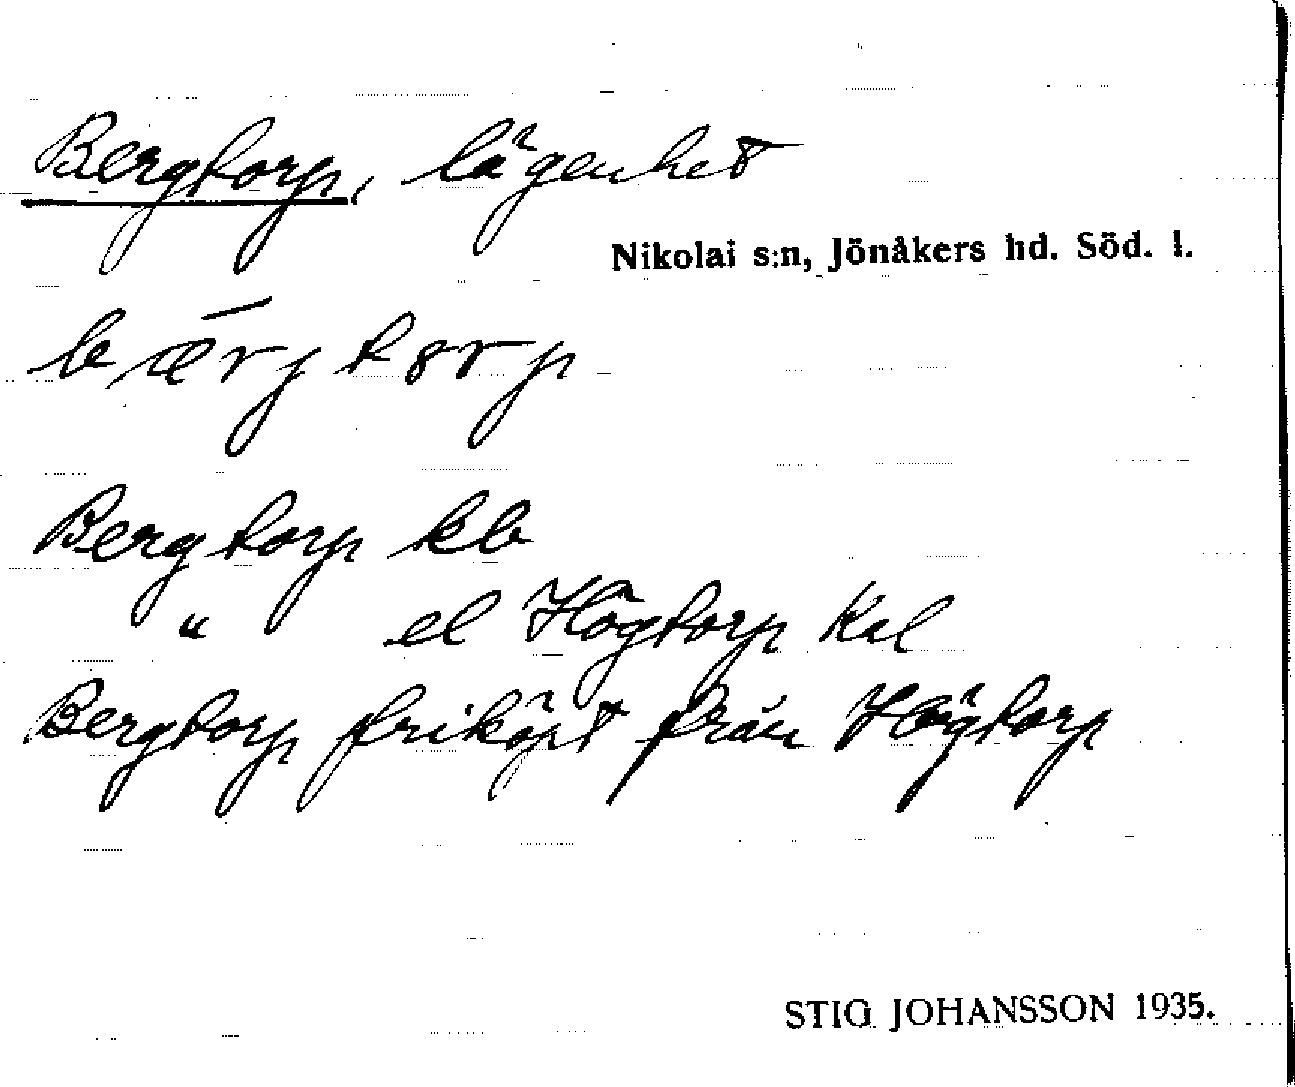 Bergtorp, lägenhet
Nikolai s:n, Jönåkers hd. Söd. l.
bærjtorp
Bergtorp kb
" el Högtorp Kal
Bergtorp friköpt från Högtorp
STIG JOHANSSON 1935.